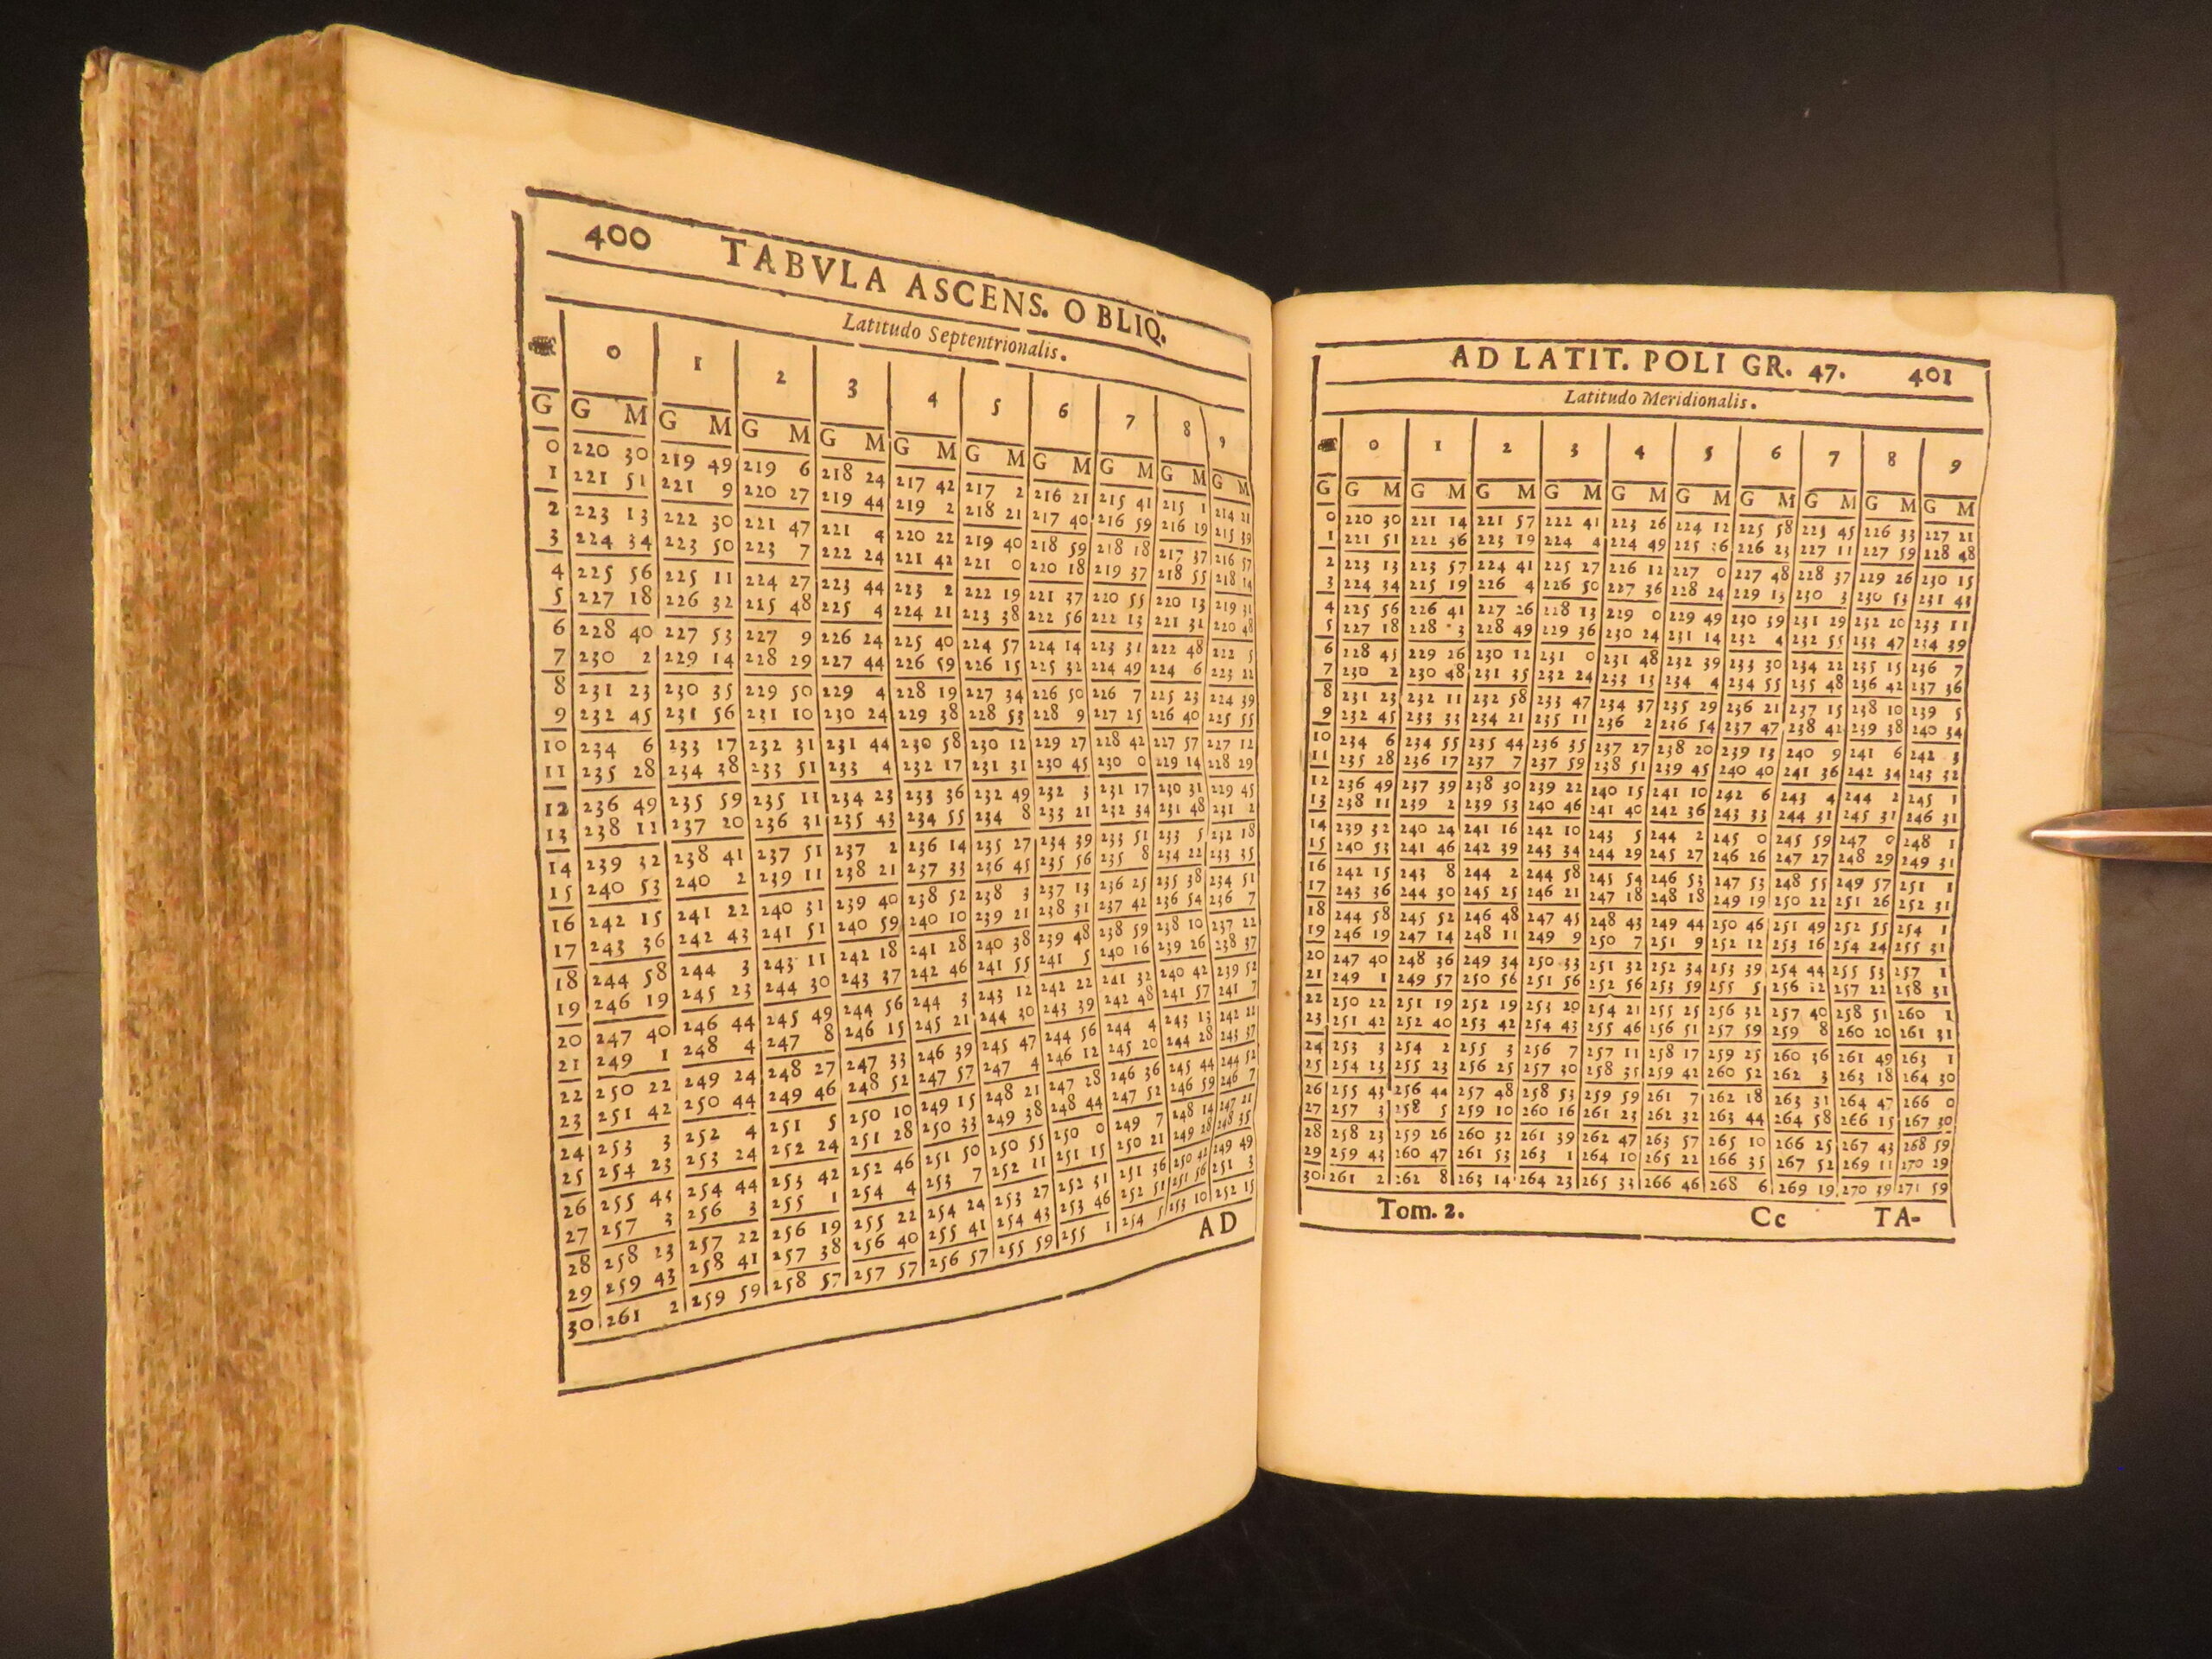 400 TABVLA ASCENS. OBLIQ.
Latitudo Septentrionalis.
0 1 2 3 4 5 6 7 8 9
G G M G M G M G M G M G M G M G M G M G M
0 220 30 219 49 219 6 218 24 217 42 217 2 216 21 215 41 215 1 214 21
1 221 51 221 9 220 27 219 44 219 2 218 21 217 40 216 59 216 19 215 39
2 223 13 222 30 221 47 221 4 220 22 219 40 218 59 218 18 217 37 216 57
3 224 34 223 50 223 7 222 24 221 42 221 0 220 18 219 37 218 55 218 14
4 225 56 225 11 224 27 223 44 223 2 222 19 221 37 220 55 220 13 219 31
5 227 18 226 32 215 48 225 4 224 21 223 38 222 56 222 13 221 31 220 48
6 228 40 227 53 227 9 226 24 225 40 224 57 224 14 223 31 222 48 222 5
7 230 2 229 14 228 29 227 44 226 59 226 15 225 32 224 49 224 6 223 22
8 231 23 230 35 229 50 229 4 228 19 227 34 226 50 226 7 225 23 224 39
9 232 45 231 56 231 10 230 24 229 38 228 53 228 9 227 25 226 40 225 55
10 234 6 233 17 232 31 231 44 230 58 230 12 229 27 228 42 227 57 227 12
11 235 28 234 38 233 51 233 4 232 17 231 31 230 45 230 0 229 14 228 29
12 236 49 235 59 235 11 234 23 233 36 232 49 232 3 231 17 230 31 229 45
13 238 11 237 20 236 31 235 43 234 55 234 8 233 21 232 34 231 48 231 2
14 239 32 238 41 237 51 237 2 236 14 235 27 234 39 233 51 233 5 232 18
15 240 53 240 2 239 11 238 21 237 33 236 45 235 56 235 8 234 22 233 35
16 242 15 241 22 240 31 239 40 238 52 238 3 237 13 236 25 235 38 234 51
17 243 36 242 43 241 51 240 59 240 10 239 21 238 31 237 42 236 54 236 7
18 244 58 244 3 243 11 242 18 241 28 240 38 239 48 238 59 238 10 237 22
19 246 19 245 23 244 30 243 37 242 46 241 55 241 5 240 16 239 26 238 37
20 247 40 246 44 245 49 244 56 244 3 243 12 242 22 241 32 240 42 239 52
21 249 1 248 4 247 8 246 15 245 21 244 30 243 39 242 48 241 57 241 7
22 250 22 249 24 248 27 247 33 246 39 245 47 244 56 244 4 243 13 242 22
23 251 42 250 44 249 46 248 52 247 57 247 4 246 12 245 20 244 28 243 37
24 253 3 252 4 251 5 250 10 249 15 248 21 247 28 246 36 245 44 244 52
25 254 23 253 24 252 24 251 28 250 33 249 38 248 44 247 52 246 59 246 7
26 255 43 254 44 253 42 252 46 251 50 250 55 250 0 249 7 248 14 247 21
27 257 3 256 3 255 1 254 4 253 7 252 11 251 15 250 21 249 28 248 35
28 258 23 257 22 256 19 255 22 254 24 253 27 252 31 251 36 250 42 249 49
29 259 43 258 41 257 38 256 40 255 41 254 43 253 46 252 51 251 56 251 3
30 261 2 259 59 258 57 257 57 256 57 255 59 255 1 254 5 253 10 252 15
AD
AD LATIT. POLI GR. 47. 401
Latitudo Meridionalis.
0 1 2 3 4 5 6 7 8 9
G G M G M G M G M G M G M G M G M G M G M
0 220 30 221 14 221 57 222 41 223 26 224 12 225 58 225 45 226 33 227 21
1 221 51 222 36 223 19 224 4 224 49 225 36 226 23 227 11 227 59 228 48
2 223 13 223 57 224 41 225 27 226 12 227 0 227 48 228 37 229 26 230 15
3 224 34 225 19 226 4 226 50 227 36 228 24 229 13 230 3 230 53 231 43
4 225 56 226 41 227 26 228 13 229 0 229 49 230 39 231 29 232 20 233 11
5 227 18 228 3 228 49 229 36 230 24 231 14 232 4 232 55 233 47 234 39
6 228 45 229 26 230 12 231 0 231 48 232 39 233 30 234 22 235 15 236 7
7 230 2 230 48 231 35 232 24 233 13 234 4 234 55 235 48 236 42 237 36
8 231 23 232 11 232 58 233 47 234 37 235 29 236 21 237 15 238 10 239 5
9 232 45 233 33 234 21 235 11 236 2 236 54 237 47 238 42 239 38 240 34
10 234 6 234 55 235 44 236 35 237 27 238 20 239 13 240 9 241 6 242 3
11 235 28 236 17 237 7 237 59 238 51 239 45 240 40 241 36 242 34 243 32
12 236 49 237 39 238 30 239 22 240 15 241 10 242 6 243 4 244 2 245 1
13 238 11 239 2 239 53 240 46 241 40 242 36 243 33 244 31 245 31 246 31
14 239 32 240 24 241 16 242 10 243 5 244 2 245 0 245 59 247 0 248 1
15 240 53 241 46 242 39 243 34 244 29 245 27 246 26 247 27 248 29 249 31
16 242 15 243 8 244 2 244 58 245 54 246 53 247 53 248 55 249 57 251 1
17 243 36 244 30 245 25 246 21 247 18 248 18 249 19 250 22 251 26 252 31
18 244 58 245 52 246 48 247 45 248 43 249 44 250 46 251 49 252 55 254 1
19 246 19 247 14 248 11 249 9 250 7 251 9 252 12 253 16 254 24 255 31
20 247 40 248 36 249 34 250 33 251 32 252 34 253 39 254 44 255 53 257 1
21 249 1 249 57 250 56 251 56 252 56 253 59 255 5 256 12 257 22 258 31
22 250 22 251 19 252 19 253 20 254 21 255 25 256 32 257 40 258 51 260 1
23 251 42 252 40 253 42 254 43 255 46 256 51 257 59 259 8 260 20 261 31
24 253 3 254 2 255 3 256 7 257 11 258 17 259 25 260 36 261 49 263 1
25 254 23 255 23 256 25 257 30 258 35 259 42 260 52 262 3 263 18 264 30
26 255 43 256 44 257 48 258 53 259 59 261 7 262 18 263 31 264 47 266 0
27 257 3 258 5 259 10 260 16 261 23 262 32 263 44 264 58 266 15 267 30
28 258 23 259 26 260 32 261 39 262 47 263 57 265 10 266 25 267 43 268 59
29 259 43 260 47 261 53 263 1 264 10 265 22 266 35 267 52 269 11 270 29
30 261 2 262 8 263 14 264 23 265 33 266 46 268 6 269 19 270 39 271 59
Tom. 2. Cc TA-